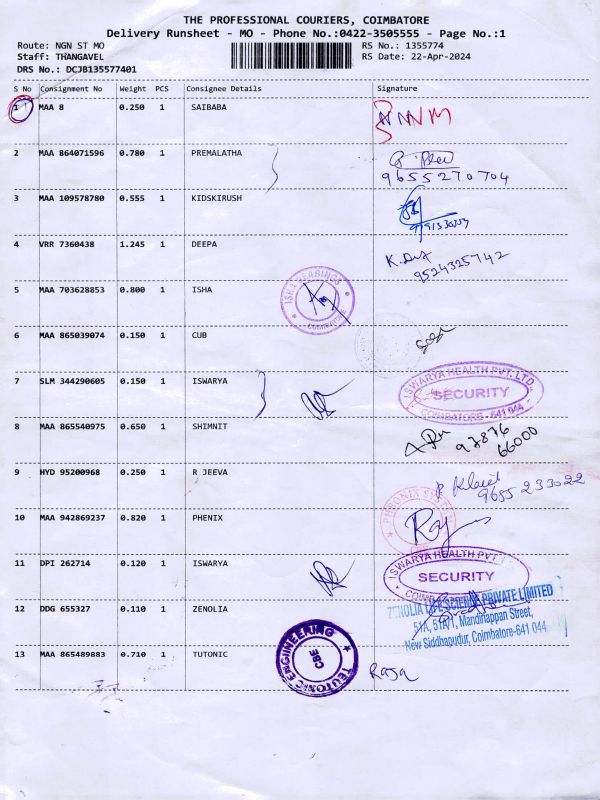 THE PROFESSIONAL COURIERS, COIMBATORE
Delivery Runsheet - MO - Phone No.:0422-3505555 - Page No.:1
Route: NGN ST MO
RS No.: 1355774
Staff: THANGAVEL
RS Date: 22-Apr-2024
DRS No.: DCJB135577401
S No Consignment No Weight PCS Consignee Details Signature
1 MAA 8 0.250 1 SAIBABA
2 MAA 864071596 0.780 1 PREMALATHA
9655270704
3 MAA 109578780 0.555 1 KIDSKIRUSH
4 VRR 7360438 1.245 1 DEEPA
9524325742
5 MAA 703628853 0.800 1 ISHA
COIMBATORE
6 MAA 865039074 0.150 1 CUB
7 SLM 344290605 0.150 1 ISWARYA
ISWARYA HEALTH PVT. LTD.
SECURITY
COIMBATORE - 641 044
8 MAA 865540975 0.650 1 SHIMNIT
97876
66000
9 HYD 95200968 0.250 1 R JEEVA
9655 233022
10 MAA 942869237 0.820 1 PHENIX
11 DPI 262714 0.120 1 ISWARYA
ISWARYA HEALTH PVT.
SECURITY
12 DDG 655327 0.110 1 ZENOLIA
ZENOLIA LIFE SCIENCE PRIVATE LIMITED
51A, 51A/1, Mandhiappan Street,
New Siddhapudur, Coimbatore-641 044
13 MAA 865489883 0.710 1 TUTONIC
TEUTONIC ENGINEERING
CBE
Raja